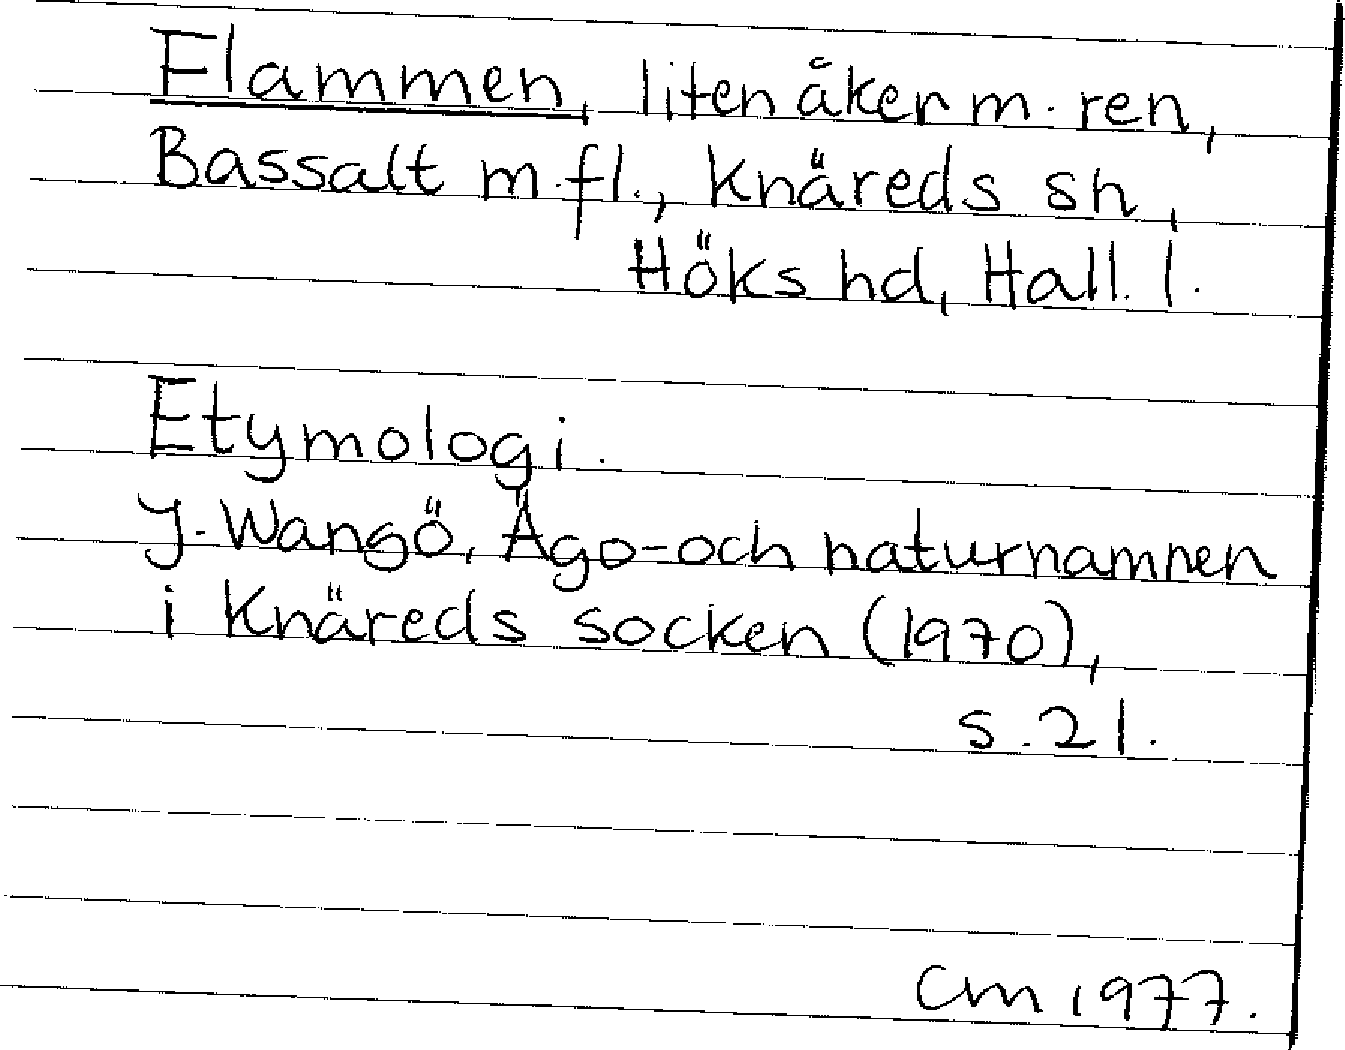 Flammen, liten åker m. ren,
Bassalt m.fl., Knäreds sn,
Höks hd, Hall. l.
Etymologi.
J. Wangö, Ägo- och naturnamnen
i Knäreds socken (1970),
s. 21.
CM 1977.